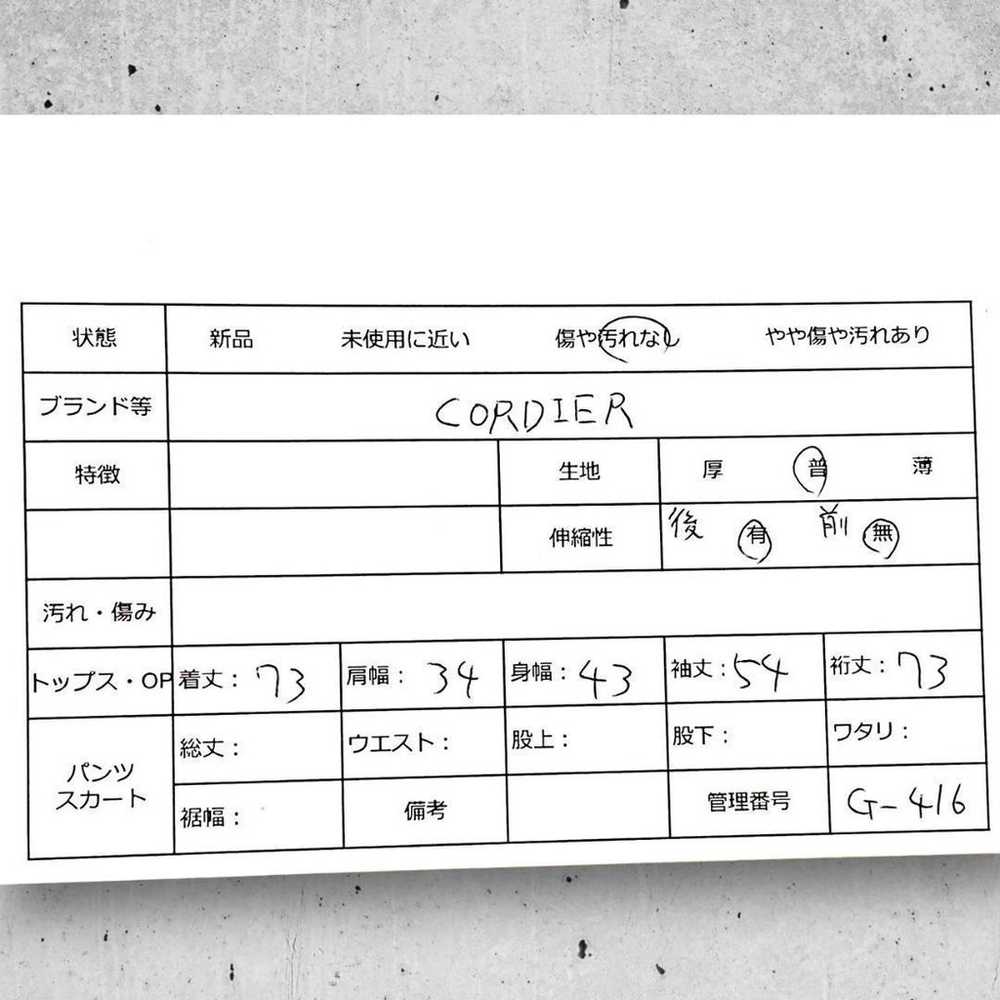 状態 新品 未使用に近い 傷や汚れなし やや傷や汚れあり
ブランド等 CORDIER
特徴 生地 厚 普 薄
伸縮性 後 有 前 無
汚れ・傷み
トップス・OP 着丈: 73 肩幅: 34 身幅: 43 袖丈: 54 裄丈: 73
パンツ 総丈: ウエスト: 股上: 股下: ワタリ:
スカート 裾幅: 備考 管理番号 G-416